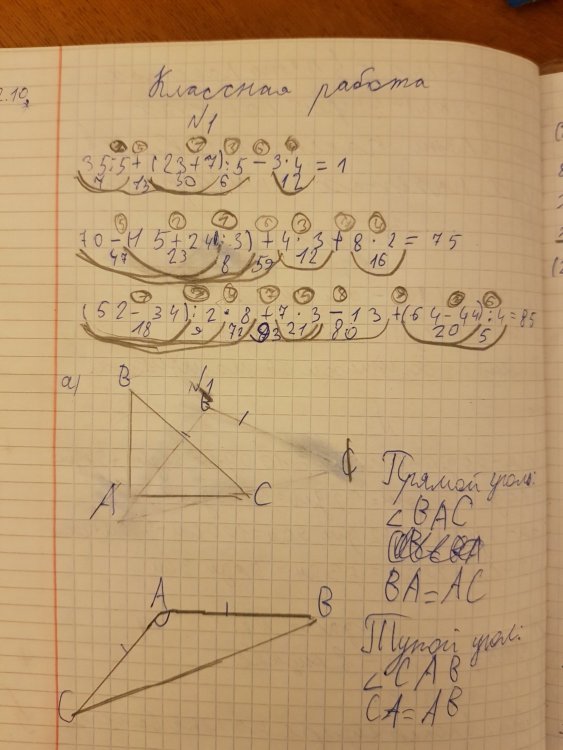 2.10.
Классная работа
№1
35:5+(23+7):5-3·4=1
7 13 30 6 12
70-(15+24:3)+4·3+8·2=75
47 23 8 59 12 16
(52-34):2·8+7·3-13+(64-44):4=85
18 9 72 93 21 80 20 5
а) B №1 B
C
A C
Прямой угол:
∠BAC
BA=AC
A B
C
Тупой угол:
∠CAB
CA=AB